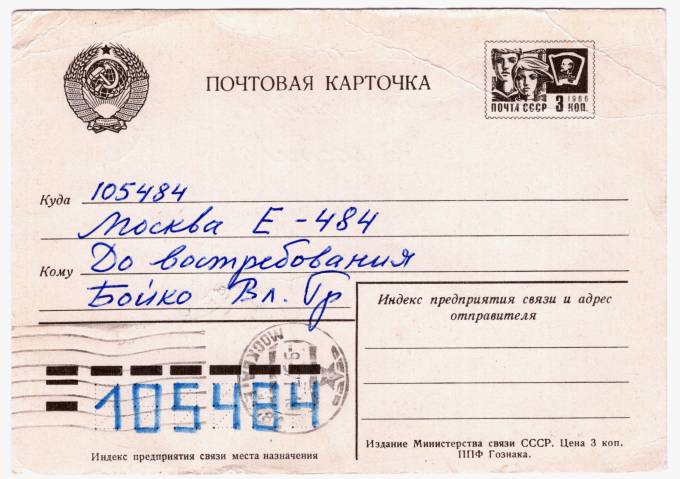 ПОЧТОВАЯ КАРТОЧКА
ПОЧТА СССР 3 1966 КОП.
Куда 105484
Москва Е-484
Кому До востребования
Бойко Вл. Гр
Индекс предприятия связи и адрес
отправителя
МОСКВА
105484
Индекс предприятия связи места назначения
Издание Министерства связи СССР. Цена 3 коп.
ППФ Гознака.